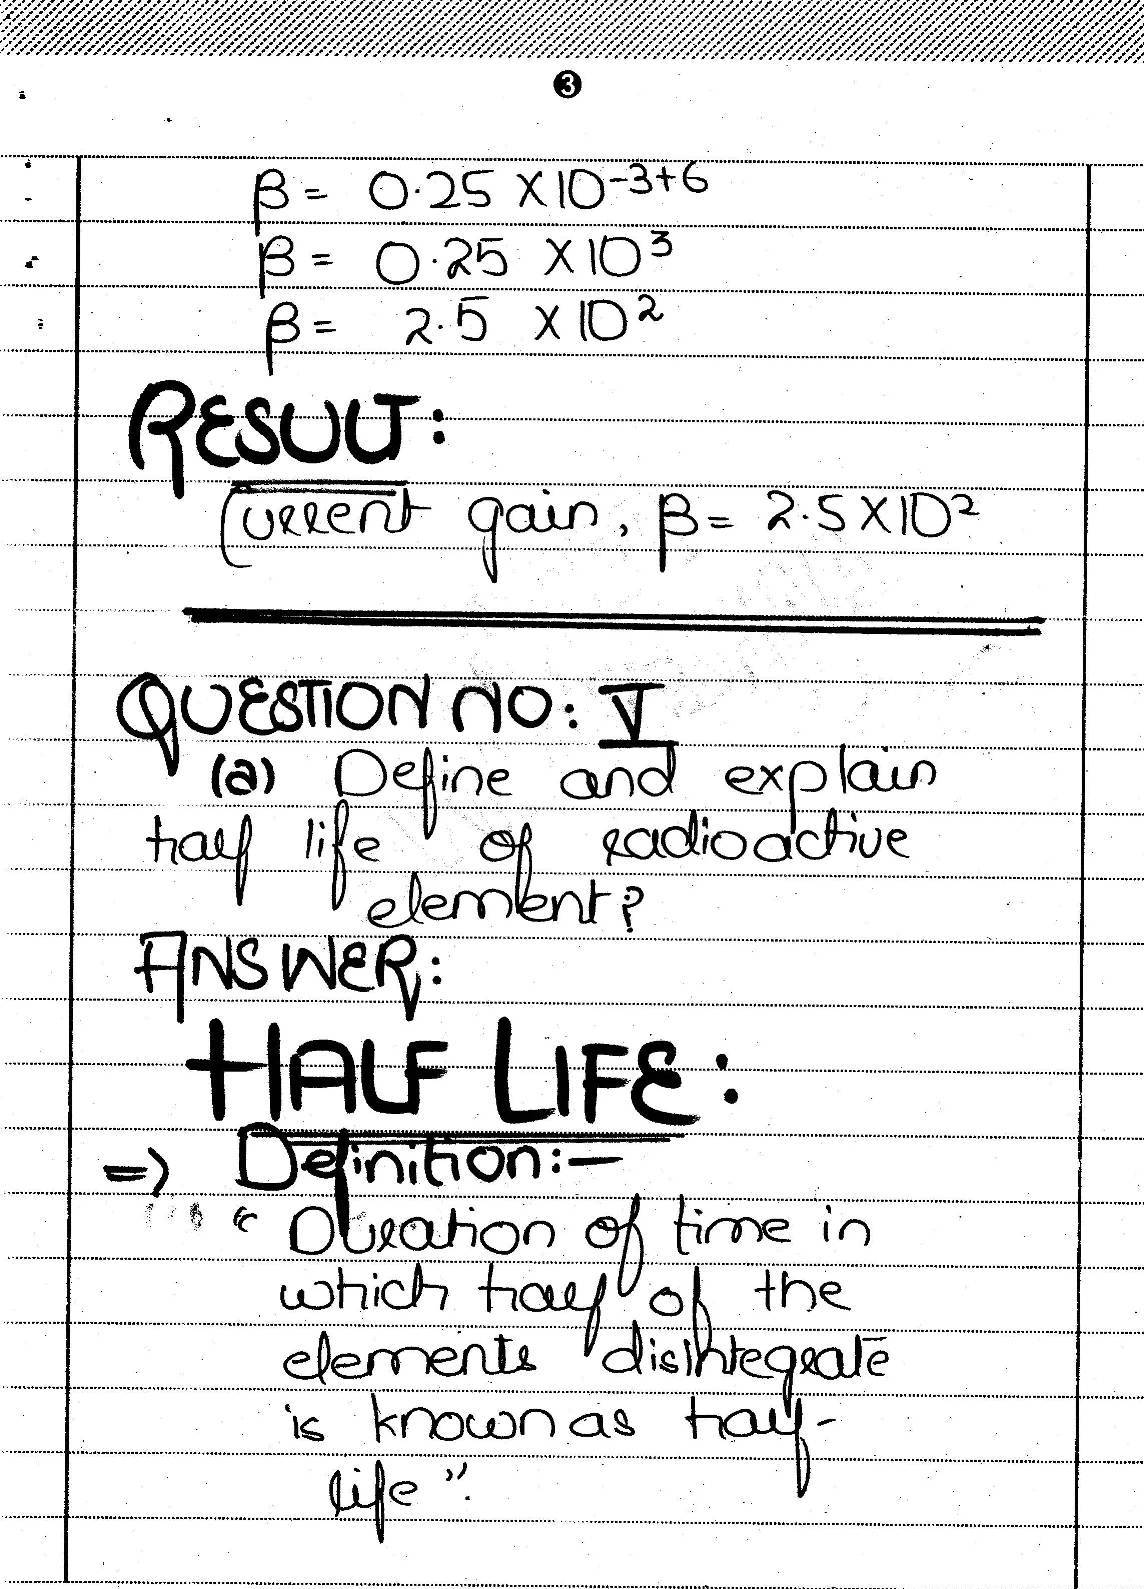 3
β = 0.25 × 10⁻³⁺⁶
β = 0.25 × 10³
β = 2.5 × 10²
RESULT:
Current gain, β = 2.5 × 10²
QUESTION NO: V
(a) Define and explain
half life of radioactive
element?
ANSWER:
HALF LIFE:
=> Definition:-
"Duration of time in
which half of the
elements disintegrate
is known as half-
life".